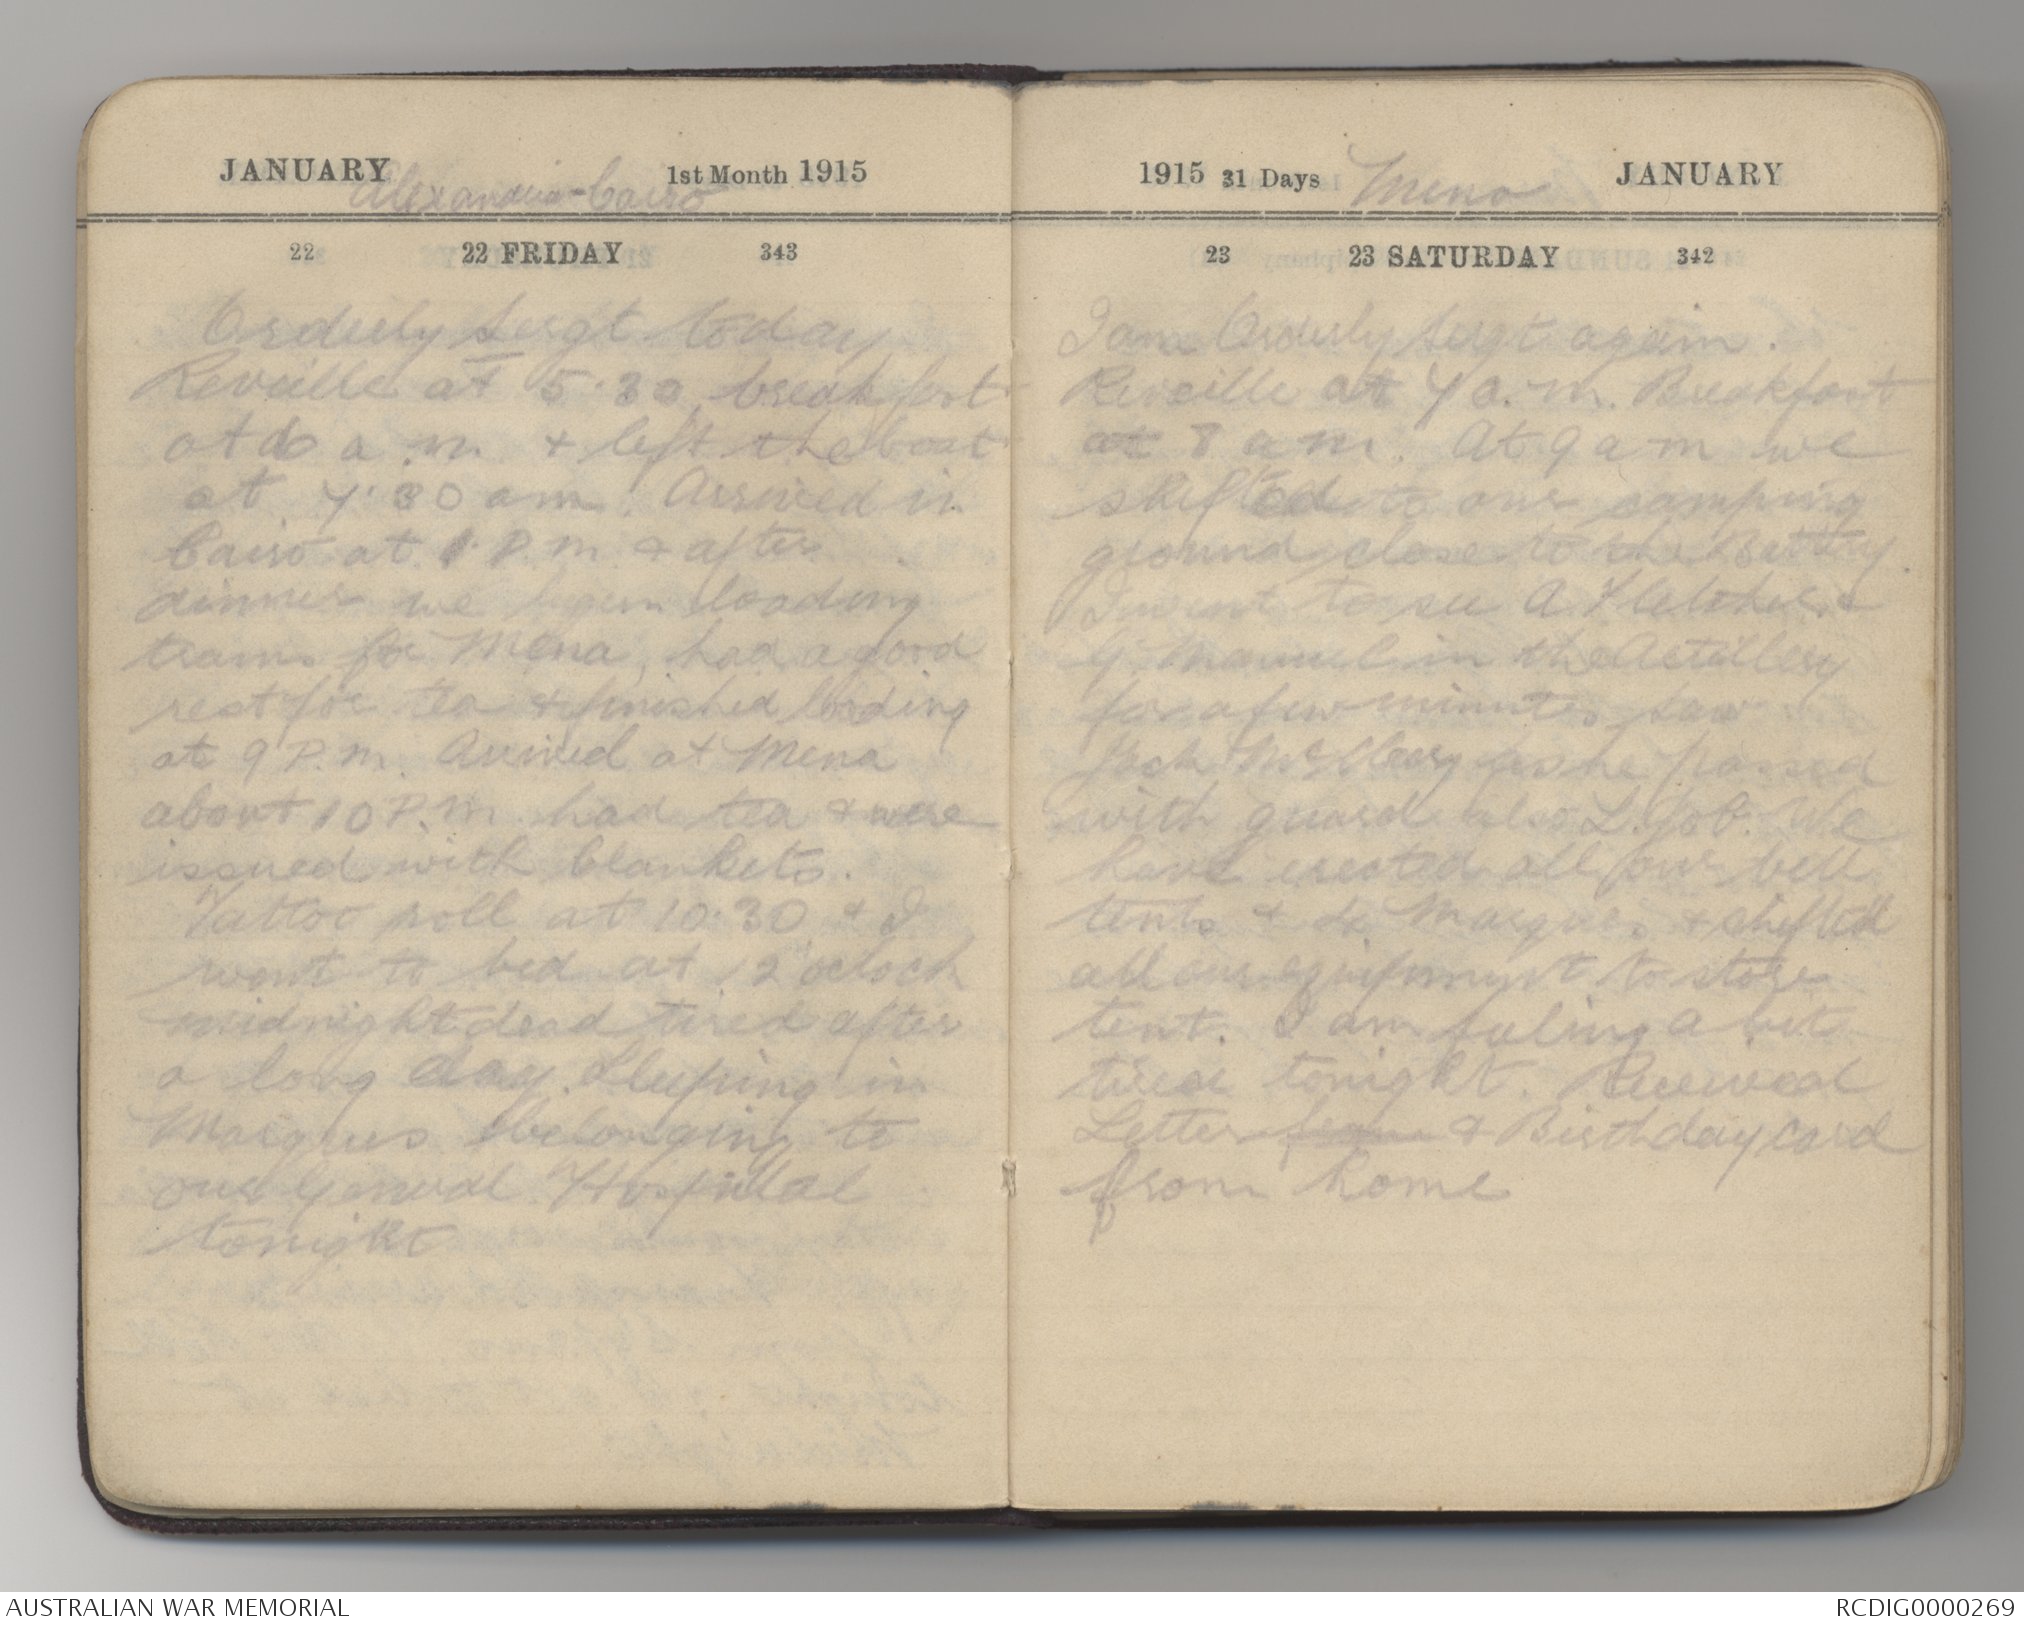 JANUARY 1st Month 1915
Alexandria-Cairo
22 22 FRIDAY 343
Orderly Sergt today
Reveille at 5.30, breakfast
at 6 a.m. & left the boat
at 7.30 am. Arrived in
Cairo at 1 P.m & after
dinner we began loading
trams for Mena, had a good
rest for tea & finished loading
at 9 P.m. Arrived at Mena
about 10 P.m. had tea & were
issued with blankets.
Tattoo roll at 10.30 & I
went to bed at 12 oclock
midnight dead tired after
a long day. Sleeping in
Marques belonging to
our General Hospital
tonight
1915 31 Days Mena JANUARY
23 23 SATURDAY 342
I am Orderly Sergt again.
Reveille at 7 a.m. Breakfast
at 8 am. At 9 am we
shifted to our camping
ground close to the Battery.
I went to see A. Fletcher &
G. Manuel in the Artillery
for a few minutes saw
Jack as he passed
with guard also L. Job. We
have erected all our bell
tents & Marques & shifted
all our equipment to store
tent. I am feeling a bit
tired tonight. Received
Letter from & Birthday card
from home
AUSTRALIAN WAR MEMORIAL RCDIG0000269